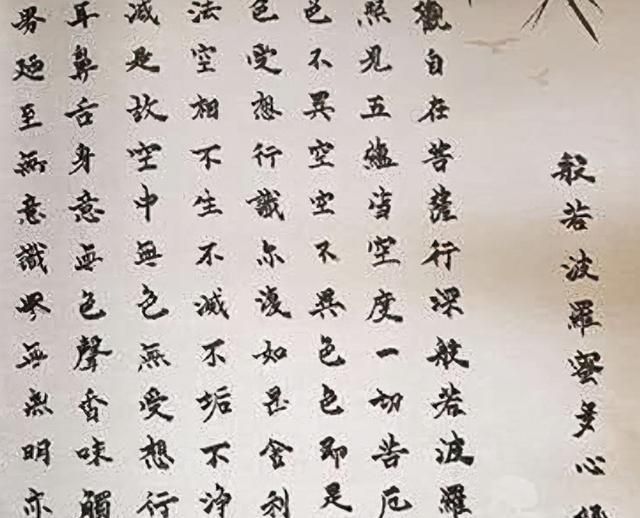 般若波羅蜜多心經
觀自在菩薩行深般若波羅
照見五蘊皆空度一切苦厄
色不異空空不異色色即是
色受想行識亦復如是舍利
法空相不生不滅不垢不淨
滅是故空中無色無受想行
耳鼻舌身意無色聲香味觸
界乃至無意識界無無明亦